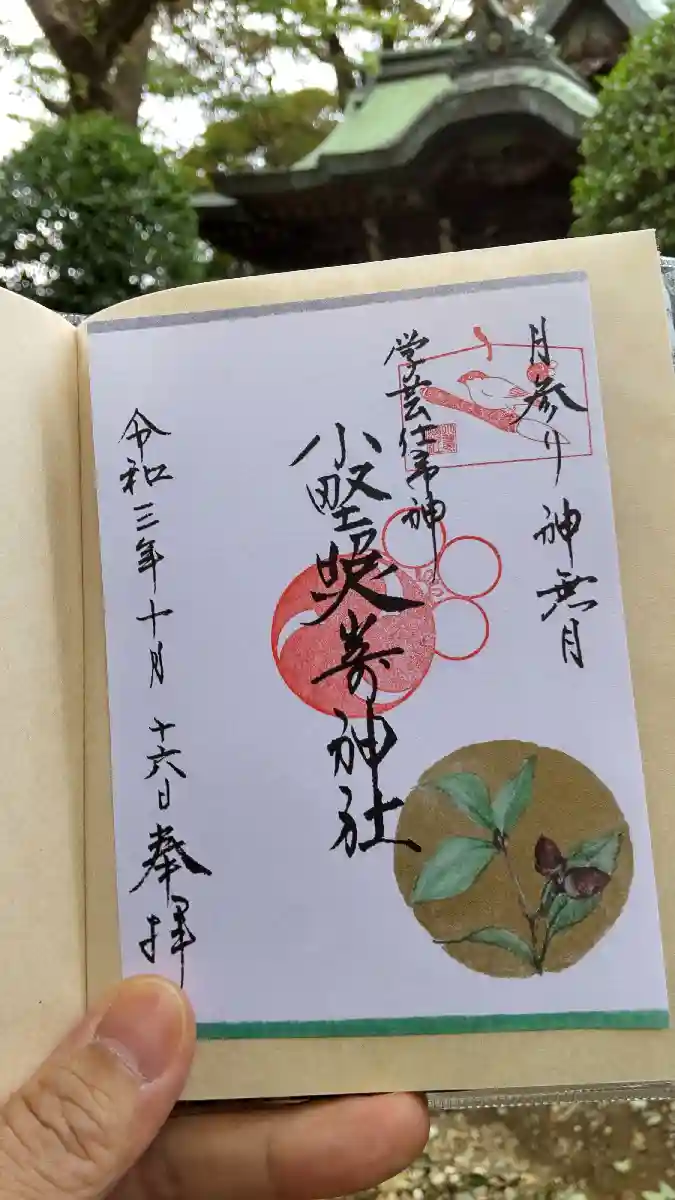 月参り 神無月
学芸仕事神
小野照嵜神社
令和三年十月 十六日 奉拝